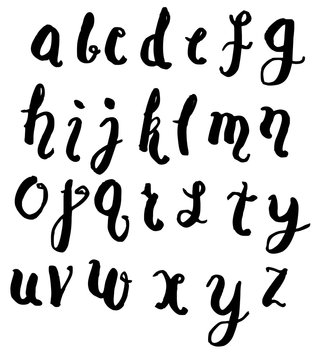 a b c d e f g
h i j k l m n
o p q r s t y
u v w x y z